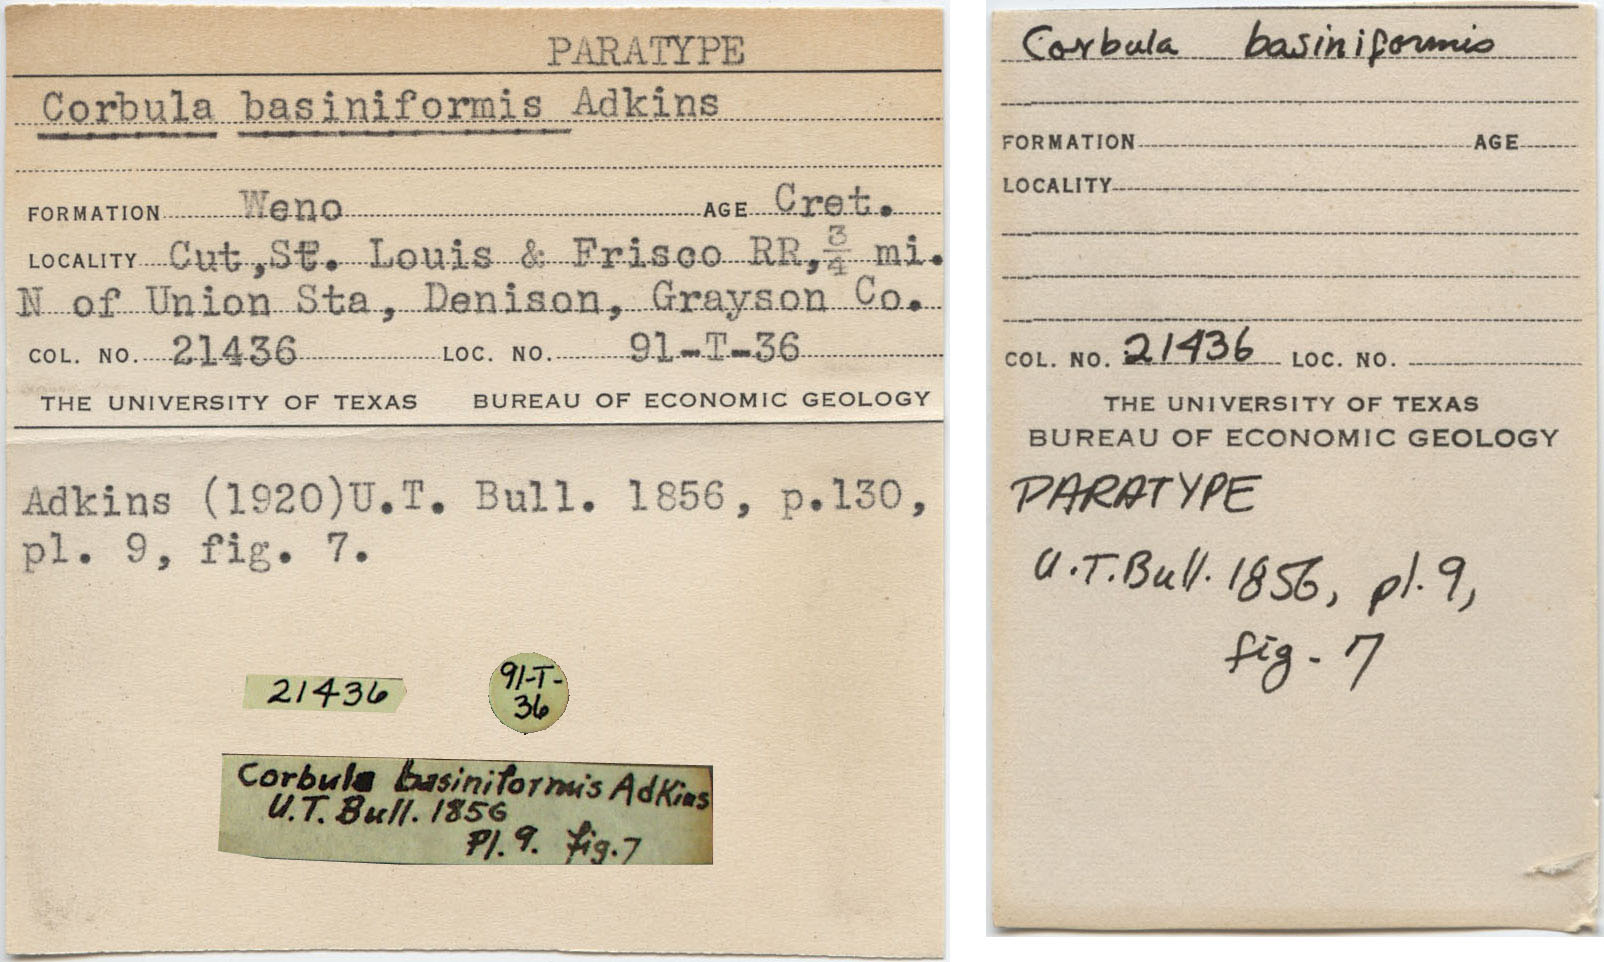 PARATYPE
Corbula basiniformis Adkins
FORMATION Weno AGE Cret.
LOCALITY Cut, St. Louis & Frisco RR, 3/4 mi.
N of Union Sta, Denison, Grayson Co.
COL. NO. 21436 LOC. NO. 91-T-36
THE UNIVERSITY OF TEXAS BUREAU OF ECONOMIC GEOLOGY
Adkins (1920)U.T. Bull. 1856, p.130,
pl. 9, fig. 7.
21436
91-T-
36
Corbula basiniformis Adkins
U.T. Bull. 1856
Pl. 9. fig. 7
Corbula basiniformis
FORMATION AGE
LOCALITY
COL. NO. 21436 LOC. NO.
THE UNIVERSITY OF TEXAS
BUREAU OF ECONOMIC GEOLOGY
PARATYPE
U.T. Bull. 1856, pl. 9,
fig. 7